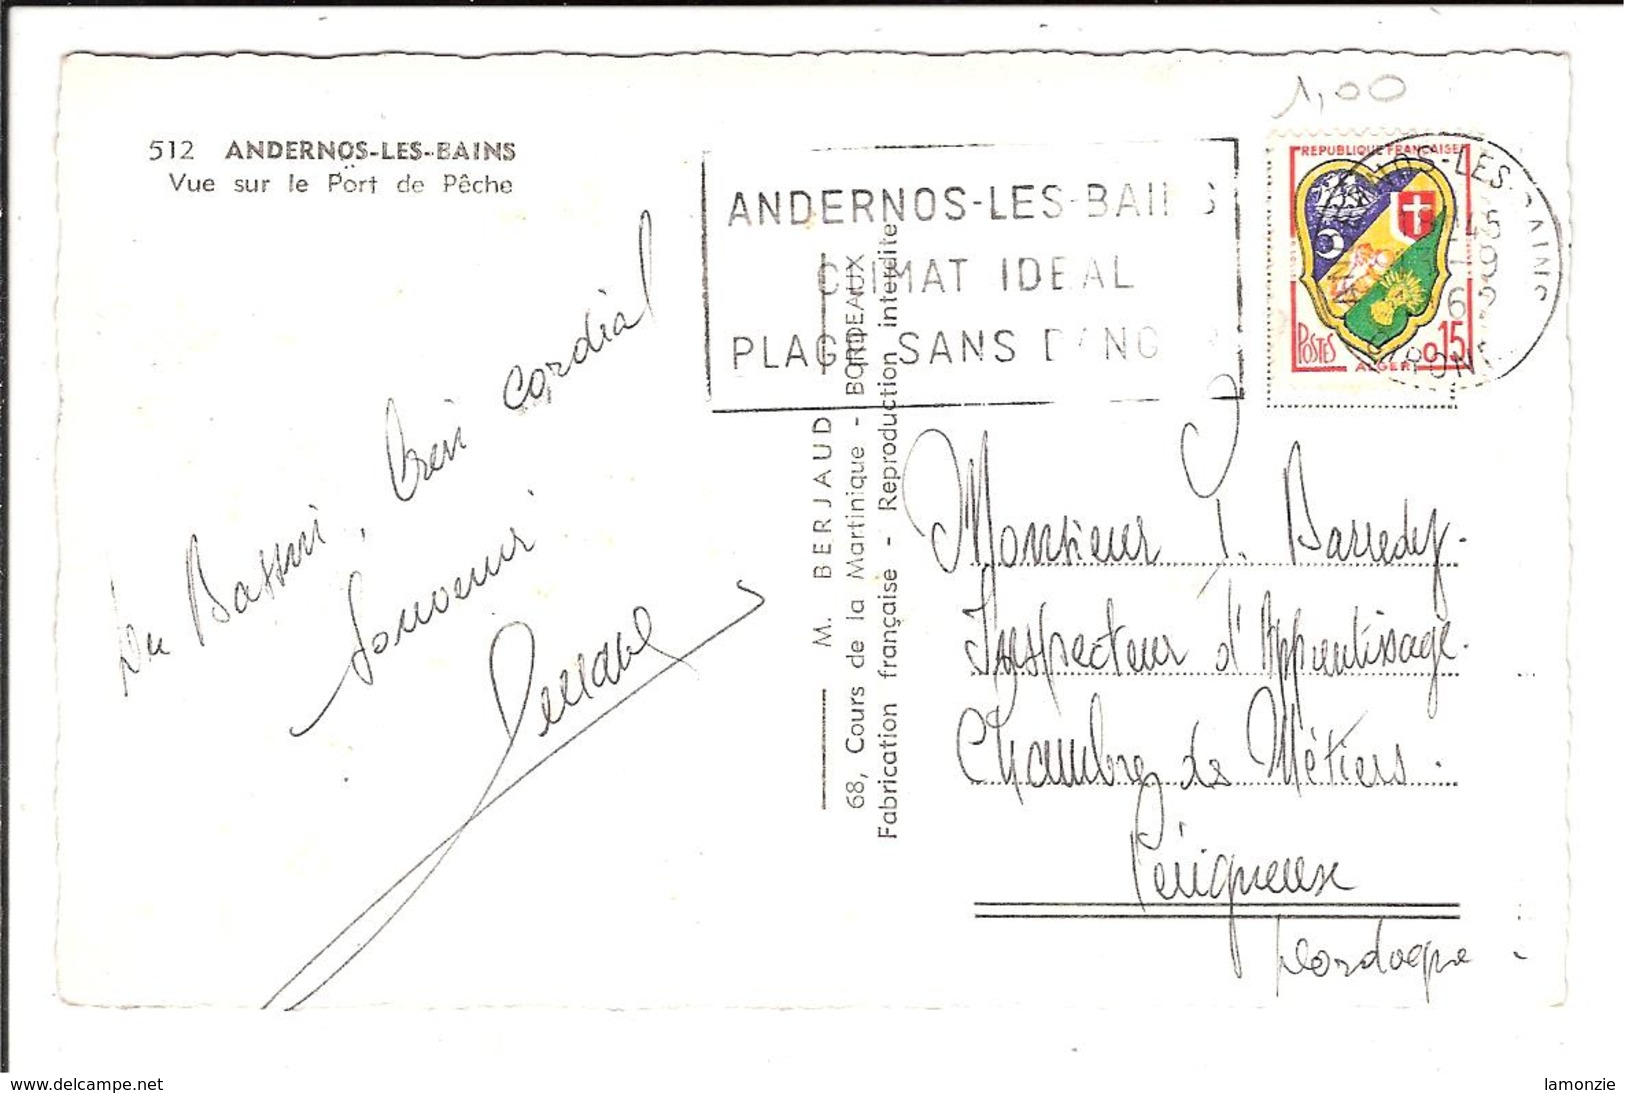 1,00
512 ANDERNOS-LES-BAINS
Vue sur le Port de Pêche
ANDERNOS-LES-BAINS
CLIMAT IDEAL
PLAGE SANS DANG
REPUBLIQUE FRANCAISE
POSTES
0,15
ALGER
OS-LES-
18 45
-9
GIRONDE
Du Bassin, bien cordial
Souvenir.
M. BERJAUD
68, Cours de la Martinique - BORDEAUX
Fabrication française - Reproduction interdite
Monsieur J. Barredy.
Inspecteur d'Apprentissage.
Chambre de Métiers.
Périgueux
Dordogne
www.delcampe.net
lamonzie